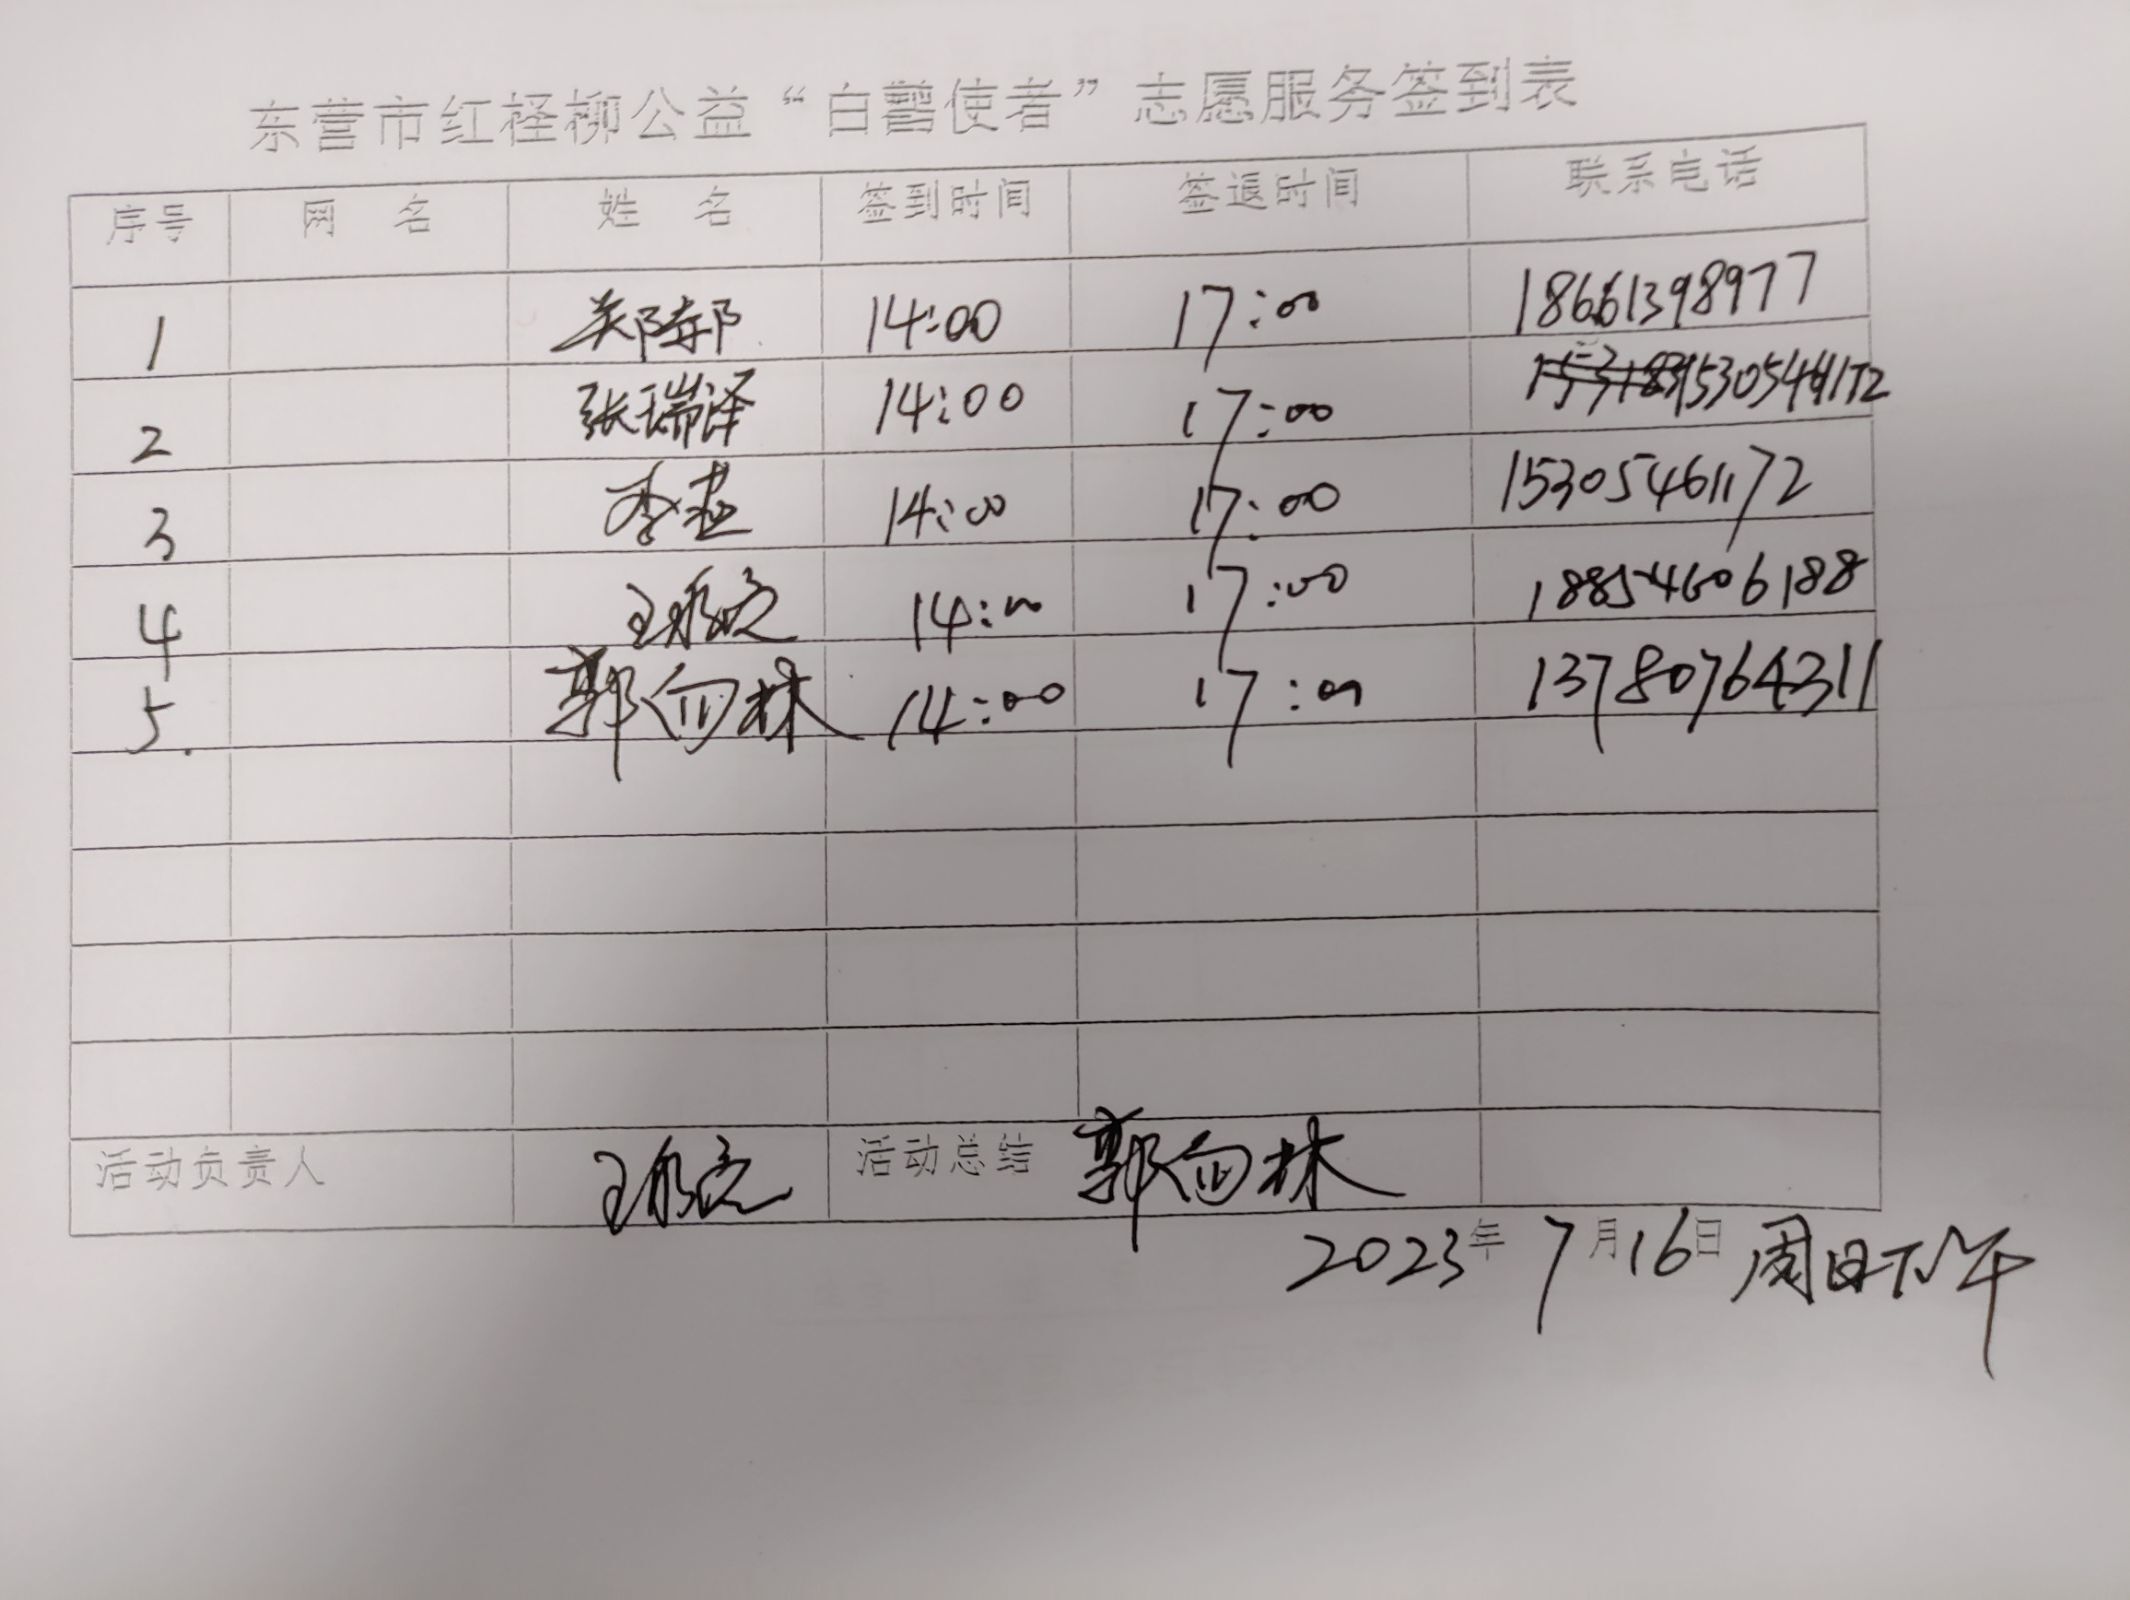 东营市红柽柳公益“白鹭使者”志愿服务签到表
序号 网 名 姓 名 签到时间 签退时间 联系电话
1 14:00 17:00 18661398977
2 张瑞泽 14:00 17:00
3 李 14:00 17:00 15305461172
4 王 14:00 17:00 18854606188
5. 郭向林 14:00 17:00 13780764311
活动负责人 王 活动总结 郭向林
2023年7月16日 周日下午